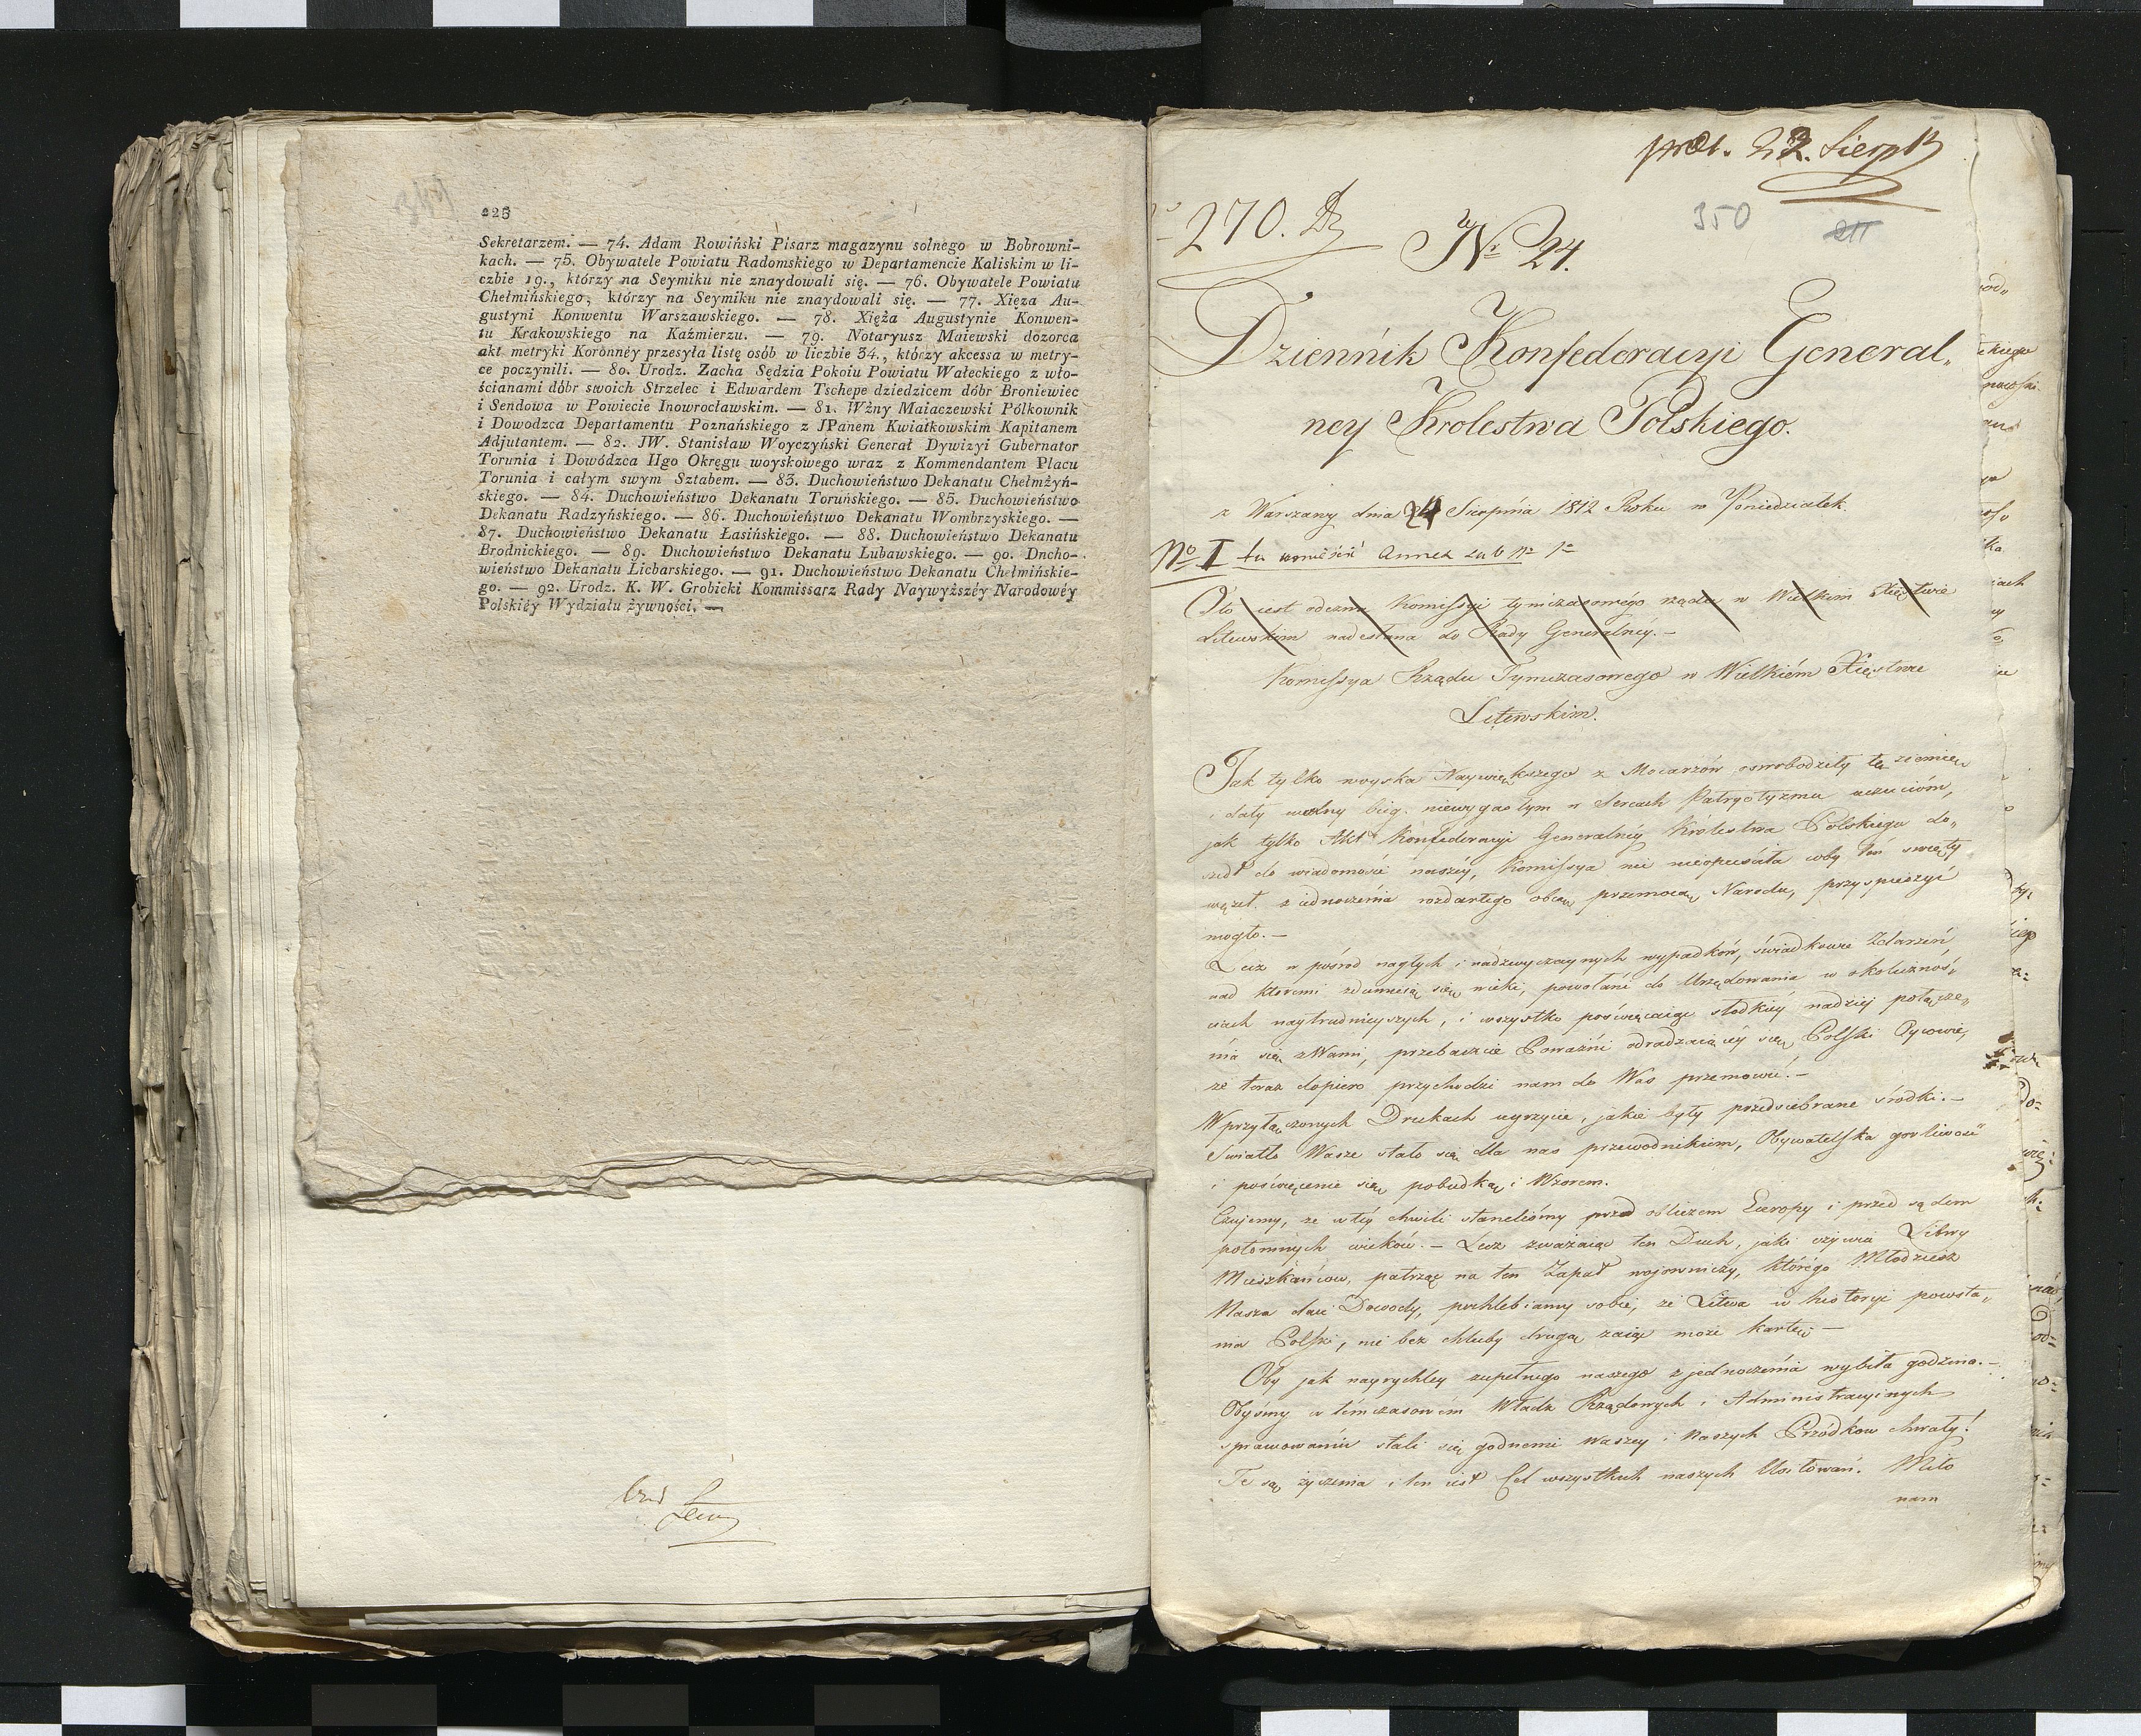 225
Sekretarzem. — 74. Adam Rowiński Pisarz magazynu solnego w Bobrowni-
kach. — 75. Obywatele Powiatu Radomskiego w Departamencie Kaliskim w li-
czbie 19., którzy na Seymiku nie znaydowali się. — 76. Obywatele Powiatu
Chełmińskiego, którzy na Seymiku nie znaydowali się. — 77. Xięza Au-
gustyni Konwentu Warszawskiego. — 78. Xięża Augustynie Konwen-
tu Krakowskiego na Kaźmierzu. — 79. Notaryusz Maiewski dozorca
akt metryki Koronnéy przesyła listę osób w liczbie 34., którzy akcessa w metry-
ce poczynili. — 80. Urodz. Zacha Sędzia Pokoiu Powiatu Wałeckiego z wło-
ścianami dóbr swoich Strzelec i Edwardem Tschepe dziedzicem dóbr Broniewiec
i Sendowa w Powiecie Inowrocławskim. — 81. Wżny Maiaczewski Pólkownik
i Dowodzca Departamentu Poznańskiego z JPanem Kwiatkowskim Kapitanem
Adjutantem. — 82. JW. Stanisław Woyczyński Generał Dywizyi Gubernator
Torunia i Dowódzca IIgo Okręgu woyskowego wraz z Kommendantem Placu
Torunia i całym swym Sztabem. — 83. Duchowieństwo Dekanatu Chełmżyń-
skiego. — 84. Duchowieństwo Dekanatu Toruńskiego. — 85. Duchowieństwo
Dekanatu Radzyńskiego. — 86. Duchowieństwo Dekanatu Wombrzyskiego. —
87. Duchowieństwo Dekanatu Łasińskiego. — 88. Duchowieństwo Dekanatu
Brodnickiego. — 89. Duchowieństwo Dekanatu Lubawskiego. — 90. Dncho-
wieństwo Dekanatu Licbarskiego. — 91. Duchowieństwo Dekanatu Chełmińskie-
go. — 92. Urodz. K. W. Grobicki Kommissarz Rady Naywyższéy Narodowéy
Polskiéy Wydziału żywności. —
350
270.
N° 24.
Dzienńik Konfederacyi General„
ney Krolestwa Polskiego.
z Warszawy dnia 24 Sierpnia 1812 Roku w Poniedziałek
N° I tu umieścić Annex sub N° 1°
Oto iest odezwa Komissyi tymczasowego rządu w Wielkim Xięstwie
Litewskim nadesłana do Rady Generalnéy. —
Komissya Rządu Tymczasowego w Wielkiém Xięstwie
Litewskim.
Jak tylko woyska Naywiększego z Mocarzów oswobodziły tę ziemię
i dały wolny bieg niewygasłym w sercach Patryotyzmu uczuciom,
jak tylko Akt Konfederacyi Generalnéy Królestwa Polskiego do„
szedł do wiadomości naszéy, Komissya nic nieopuściła coby ten święty
węzeł ziednoczenia rozdartego obcą przemocą Narodu, przyspieszyć
mogło. —
Lecz w pośrod nagłych i nadzwyczaynych wypadków, świadkowie Zdarzeń,
nad ktoremi zdumieią się wieki, powołani do Urzędowania w okolicznoś„
ciach naytrudnieyszych, i wszystko poświęcaiąc słodkiéy nadziei połącze„
nia się z Wami, przebaczcie Poważni odradzaiącéy się Polski Oycowie,
że teraz dopiero przychodzi nam do Was przemowić. —
W przyłączonych Drukach uyrzycie, jakie były przedsiebrane środki. —
Swiatło Wasze stało się dla nas przewodnikiem, Obywatelska gorliwość
i poświęcenie się pobudką i Wzorem.
Czujemy, że w téy chwili staneliśmy przed obliczem Europy i przed sądem
potomnych wieków. — Lecz zważaiąc ten Duch, jaki ożywia Litwy
Mieszkańców, patrząc na ten Zapał wojowniczy, którego Młodzież
Nasza daie Dowody, pochlebiamy sobie, że Litwa w historyi powsta„
nia Polski, nie bez chluby drugą zaiąć może kartę —
Oby jak nayrychley zupełnego naszego zjednoczenia wybiła godzina. —
Obyśmy w tymczasowém Władz Rządowych i Administracyinych
sprawowaniu stali się godnemi Waszey i Naszych Przódkow chwały!
Te są życzenia i ten iest Cel wszystkich naszych Usiłowań. Miło
nam